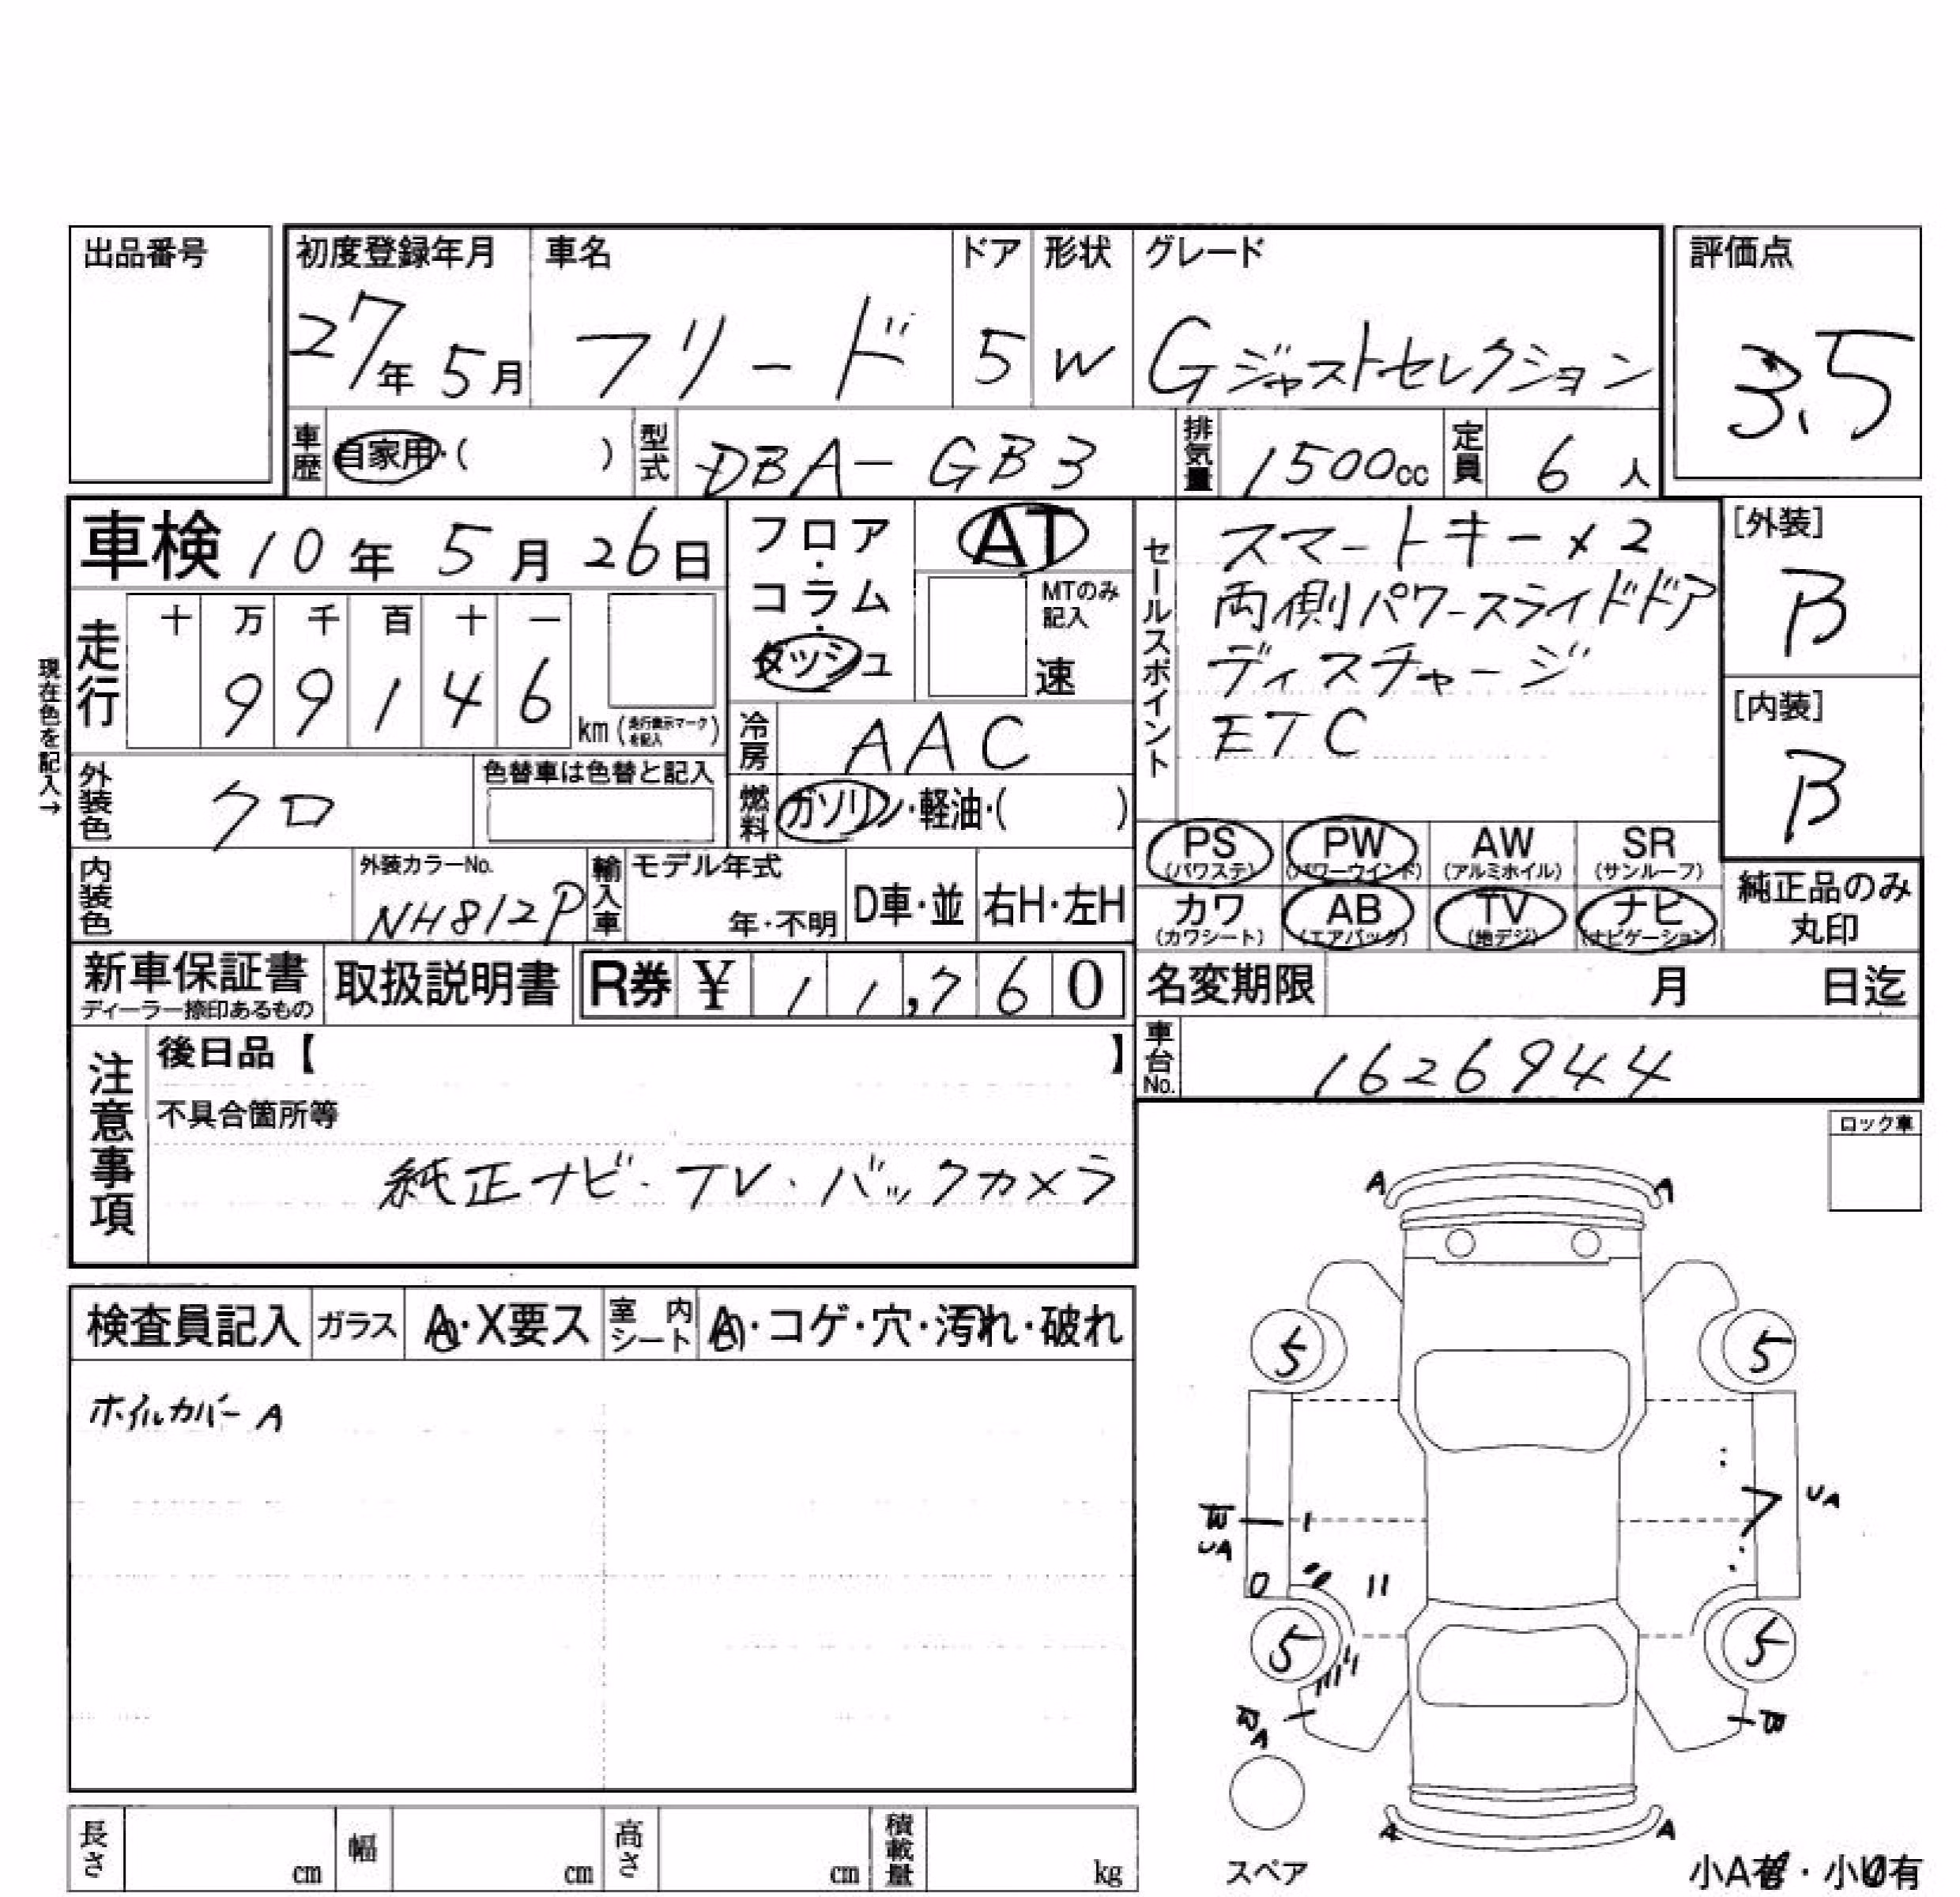 出品番号
初度登録年月 車名 ドア 形状 グレード 評価点
27年5月 フリード 5 W Gジャストセレクション 3.5
車歴 自家用・( ) 型式 DBA-GB3 排気量 1500cc 定員 6人
車検 10年5月26日
フロア・コラム・ダッシュ AT
MTのみ記入
速
走行 十 万 千 百 十 一
99146 km (走行表示マークを記入)
現在色を記入→
外装色 クロ 色替車は色替と記入
冷房 AAC
燃料 ガソリン・軽油・( )
内装色 外装カラーNo. NH812P
輸入車 モデル年式 年・不明 D車・並 右H・左H
セールスポイント
スマートキー×2
両側パワースライドドア
ディスチャージ
ETC
[外装]
B
[内装]
B
PS PW AW SR
(パワステ) (パワーウインド) (アルミホイル) (サンルーフ)
カワ AB TV ナビ
(カワシート) (エアバック) (地デジ) (ナビゲーション)
純正品のみ
丸印
新車保証書 取扱説明書 R券 ¥ 11,760
ディーラー捺印あるもの
名変期限 月 日迄
車台No. 1626944
注意事項
後日品【 】
不具合箇所等
純正ナビ・TV・バックカメラ
ロック車
検査員記入 ガラス A・X要ス 室内シート A・コゲ・穴・汚れ・破れ
ホイルカバーA
A A
5 5
UA
UA
5 5
A
A A
スペア
長さ cm 幅 cm 高さ cm 積載量 kg
小A有・小U有